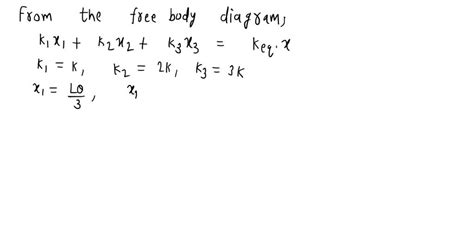 From the free body diagram;
k₁x₁ + k₂x₂ + k₃x₃ = keq. x
k₁ = k, k₂ = 2k, k₃ = 3k
x₁ = Lθ/3, x₁